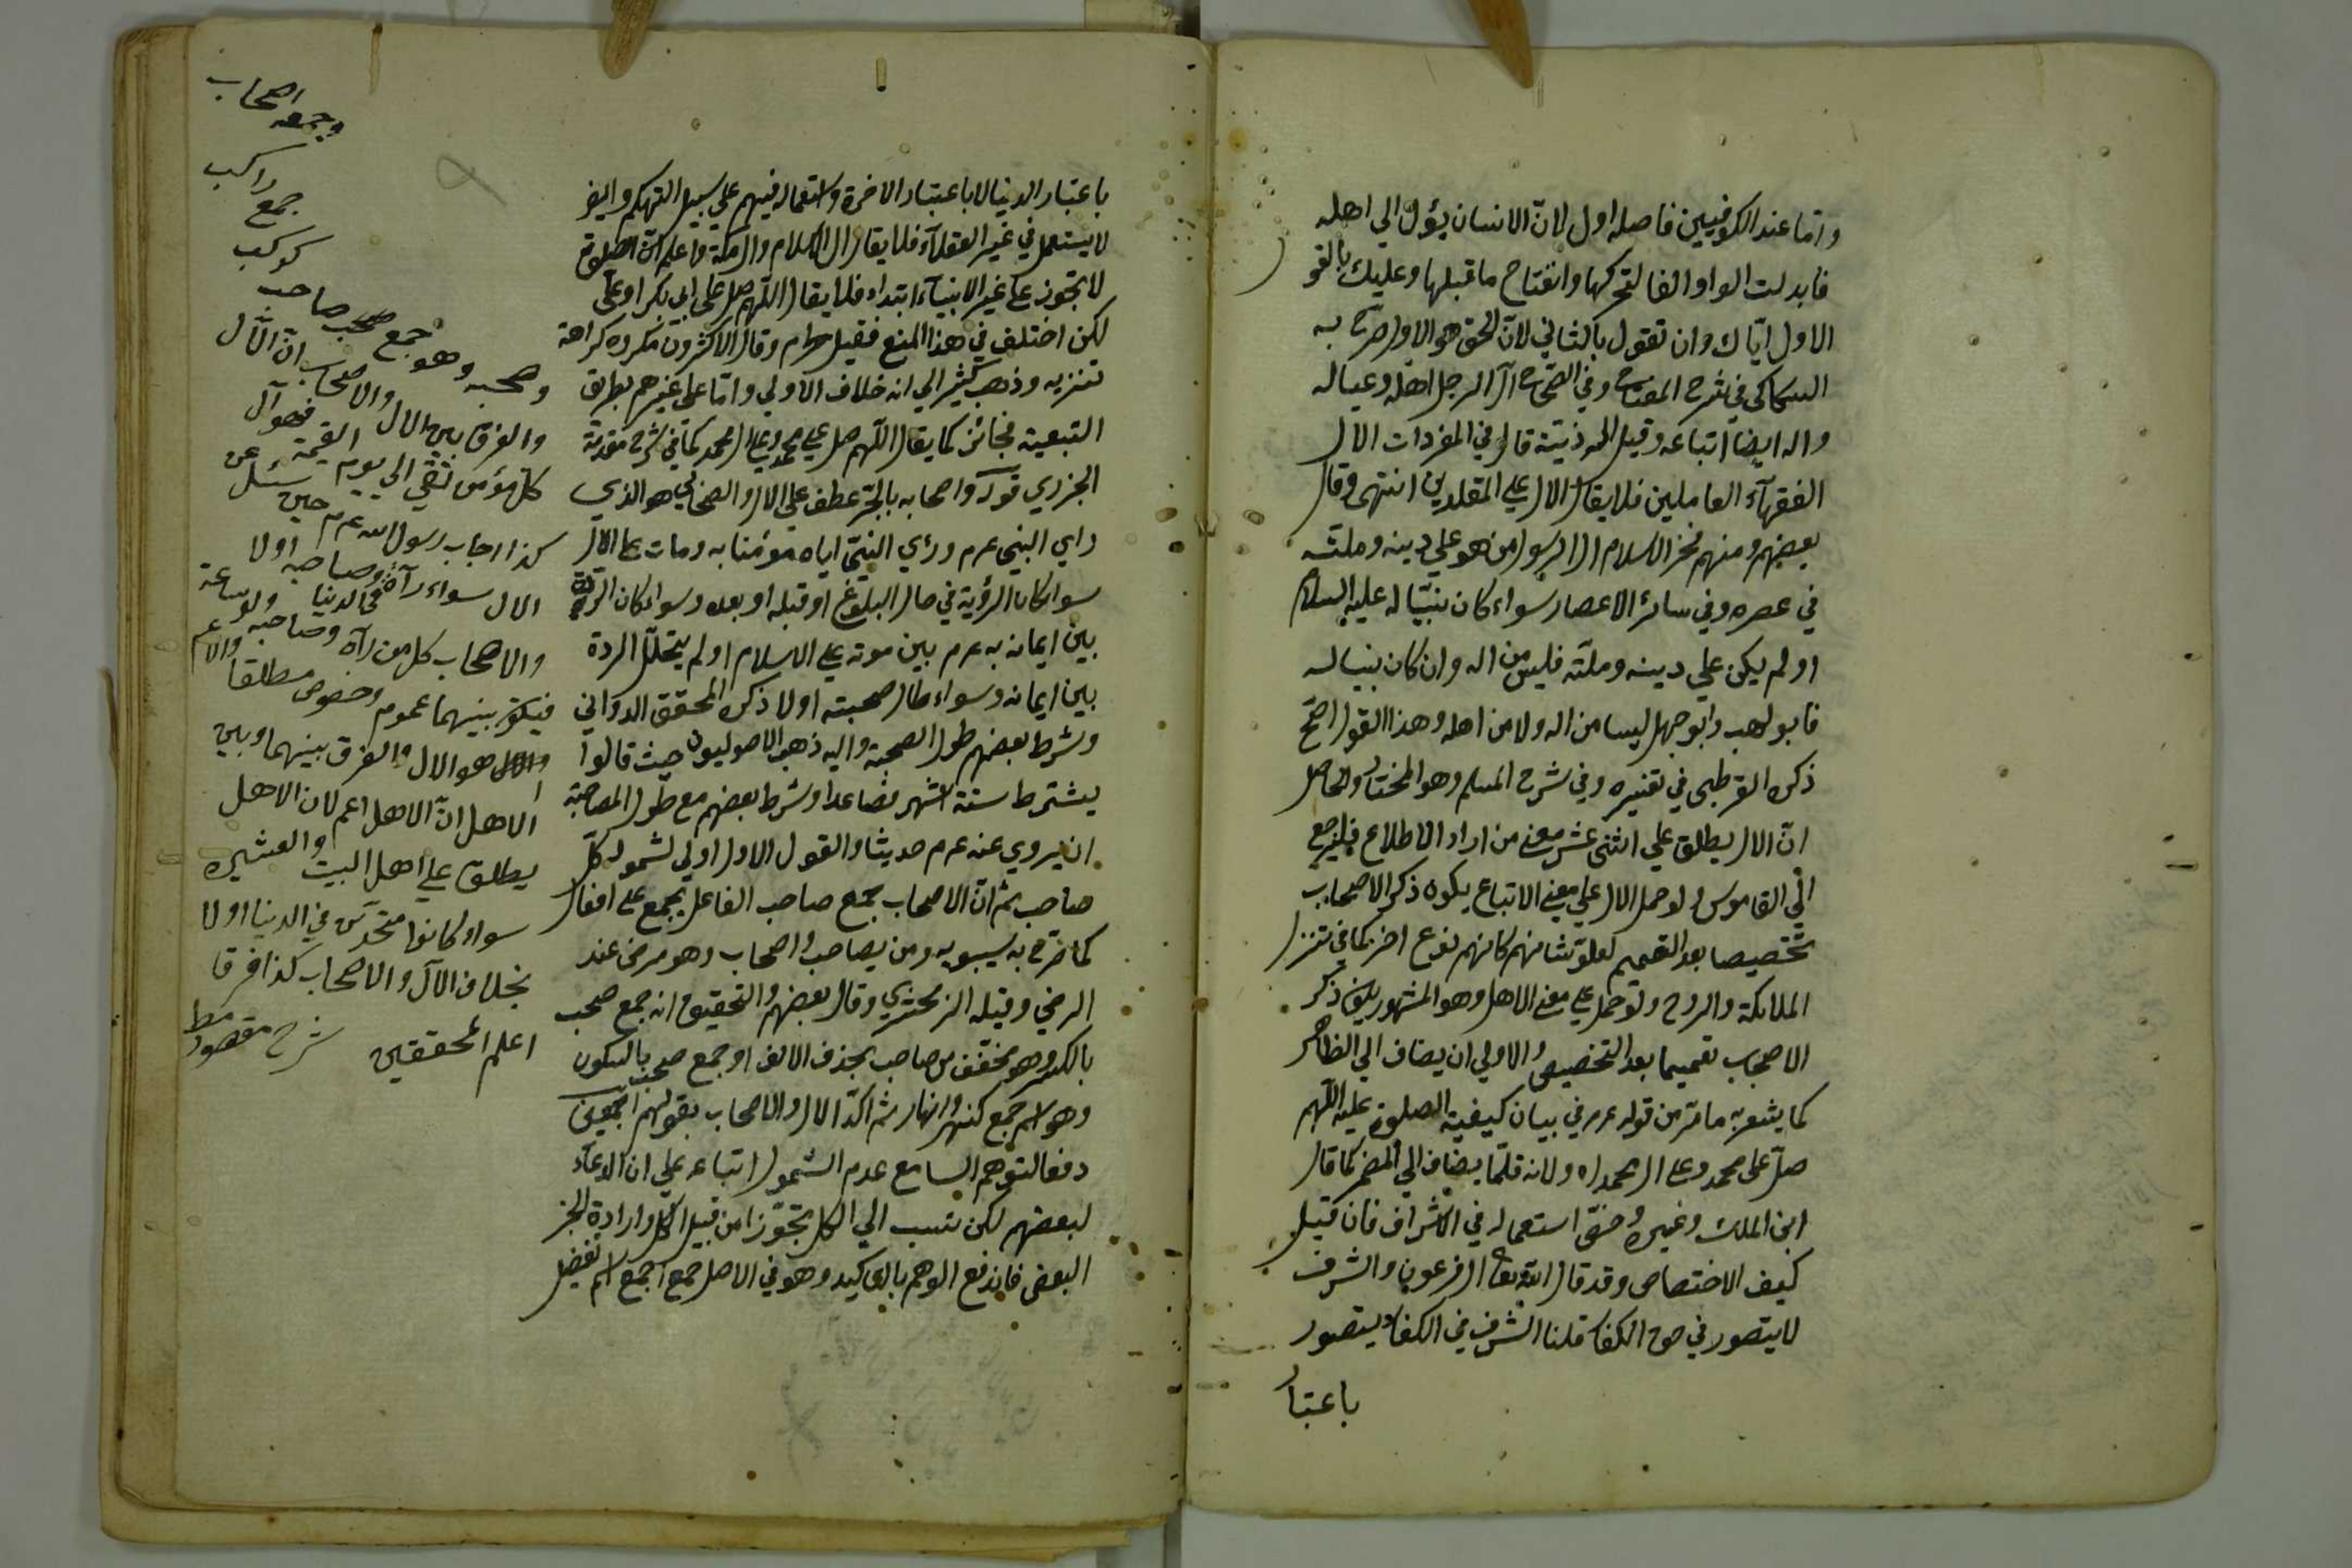 واما عند الكوفيين فاصله اول لانّ الانسان يؤل الي اهله
فابدلت الواو الفا لتحركها وانفتاح ما قبلها وعليك بالقو
الاول ايّاك وان تقول بالثاني لانّ الحق هو الاول صرّح به
السكاكي في شرح المفتاح وفي الصحاح آل الرجل اهله وعياله
واله ايضا اتباعه وقيل اله ذريته قال في المفردات الال
الفقهآء العاملين فلا يقال الال علي المقلدين انتهى وقال
بعضهم ومنهم فخر الاسلام ال الرسول من هو علي دينه وملته
في عصره وفي سائر الاعصار سواء كان نسبّا له عليه السلام
او لم يكن علي دينه وملّته فليس من اله وان كان نسبا له
فابو لهب وابو جهل ليسا من اله ولا من اهله وهذا القول اصّح
ذكره القرطبي في تفسيره وفي شرح المسلم وهو المختار والحاصل
انّ الال يطلق علي اثنى عشر معنى من اراد الاطلاع فليرجع
الّي القاموس ولو حمل الال علي معنى الاتباع يكون ذكر الاصحاب
تخصيصا بعد التعميم لعلوّ شانهم كانهم نوع اخر كما في تنزل
الملائكة والروح ولو حمل علي معنى الاهل وهو المشهور يكون ذكر
الاصحاب تعميما بعد التخصيص والاولي ان يضاف الي الظاهر
كما يشعر به ما مّر من قوله عرم في بيان كيفية الصلوة عليه اللّهم
صلّ على محمد وعلى ال محمد اه ولانه قلّما يضاف الي المضمر كما قال
ابن الملك وغيره وخصّ استعماله في الاشراف فان قيل
كيف الاختصاص وقد قال الله تعا ال فرعون والشرف
لا يتصور في حق الكفار قلنا الشرف في الكفار يتصور
باعتبار
باعتبار الدنيا لا باعتبار الاخرة واستعماله فيهم علي سبيل التهكم وايضا
لا يستعمل في غير العقلآء فلا يقال ال الاسلام وال مكة واعلم انّ الصلوة
لا تجوز علي غير الانبيآء ابتداء فلا يقال اللّهم صل علي ابي بكر او علي
لكن اختلف في هذا المنع فقيل حرام وقال الاكثرون مكروه كراهة
تنزيه وذهب كثير الي انه خلاف الاولي واما على غيرهم بطريق
التبعية فجائز كما يقال اللّهم صل علي محمد وعلي ال محمد كما في شرح مقدمة
الجزري قوله واصحابه بالجّر عطف علي الال والصحابي هو الذي
راي النبي عرم ورأي النبيّ اياه مؤمنا به ومات على
سواء كان الرؤية في حال البلوغ او قبله او بعده وسواء كان الردة
بين ايمانه به عرم بين موته علي الاسلام او لم يتخلل الردة
بين ايمانه وسواء طال صحبته اولا ذكره المحقق الدواني
وشرط بعضهم طول الصحبة واليه ذهب الاصوليون حيث قالوا
يشترط ستة اشهر فصاعدا وشرط بعضهم مع طول المصاحبة
ان يروي عنه عرم حديثا والقول الاول اولي لشموله كلّ
صاحب ثم انّ الاصحاب جمع صاحب الفاعل يجمع على افعال
كما صرّح به سيبويه ومن يصاحب واصحاب وهو مرضى عند
الرضي وقبله الزمخشري وقال بعضهم والتحقيق انه جمع صحب
بالكسر وهو مخفف من صاحب بحذف الالف او جمع صحب بالسكون
وهو اسم جمع كنهر وانهار ثم اكّد الال والاصحاب بقولهم اجمعين
دفعا لتوهم السامع عدم الشمول اتباعه علي ان الدعآء
لبعضهم لكن نسب الي الكل تجوّزا من قبيل الكل وارادة الجز
البعض فاندفع الوهم بالتاكيد وهو في الاصل جمع اجمع اسم تفضيل
وجمعه اصحاب
جمع راكب
كوكب
وصحبه وهو جمع صحب صاحب
والفرق بين الال والاصحاب انّ الآل
كل مؤمن تقي الي يوم القيمة فهو آل
كذا اجاب رسول الله عرم حين سئل عن
الال سواء رآه وصاحبه اولا
والاصحاب كل من رآه وصاحبه في الدنيا ولو ساعة
فيكون بينهما عموم وخصوص مطلقا والاعم
هو الال والفرق بينهما وبين
الاهل انّ الاهل اعم لان الاهل
يطلق علي اهل البيت والعشيره
سواء كانوا متحدين في الدنيا اولا
بخلاف الآل والاصحاب كذا فرقا
اعلم المحققين شرح مقصود